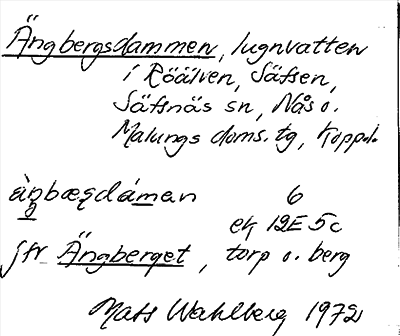 Ängbergsdammen, lugnvatten
i Röälven, Säfsen,
Säfsnäs sn, Nås o.
Malungs doms. tg, Koppb.
àŋbæʂdáman 6
ek 12E 5c
jfr Ängberget, torp o. berg
Mats Wahlberg 1972